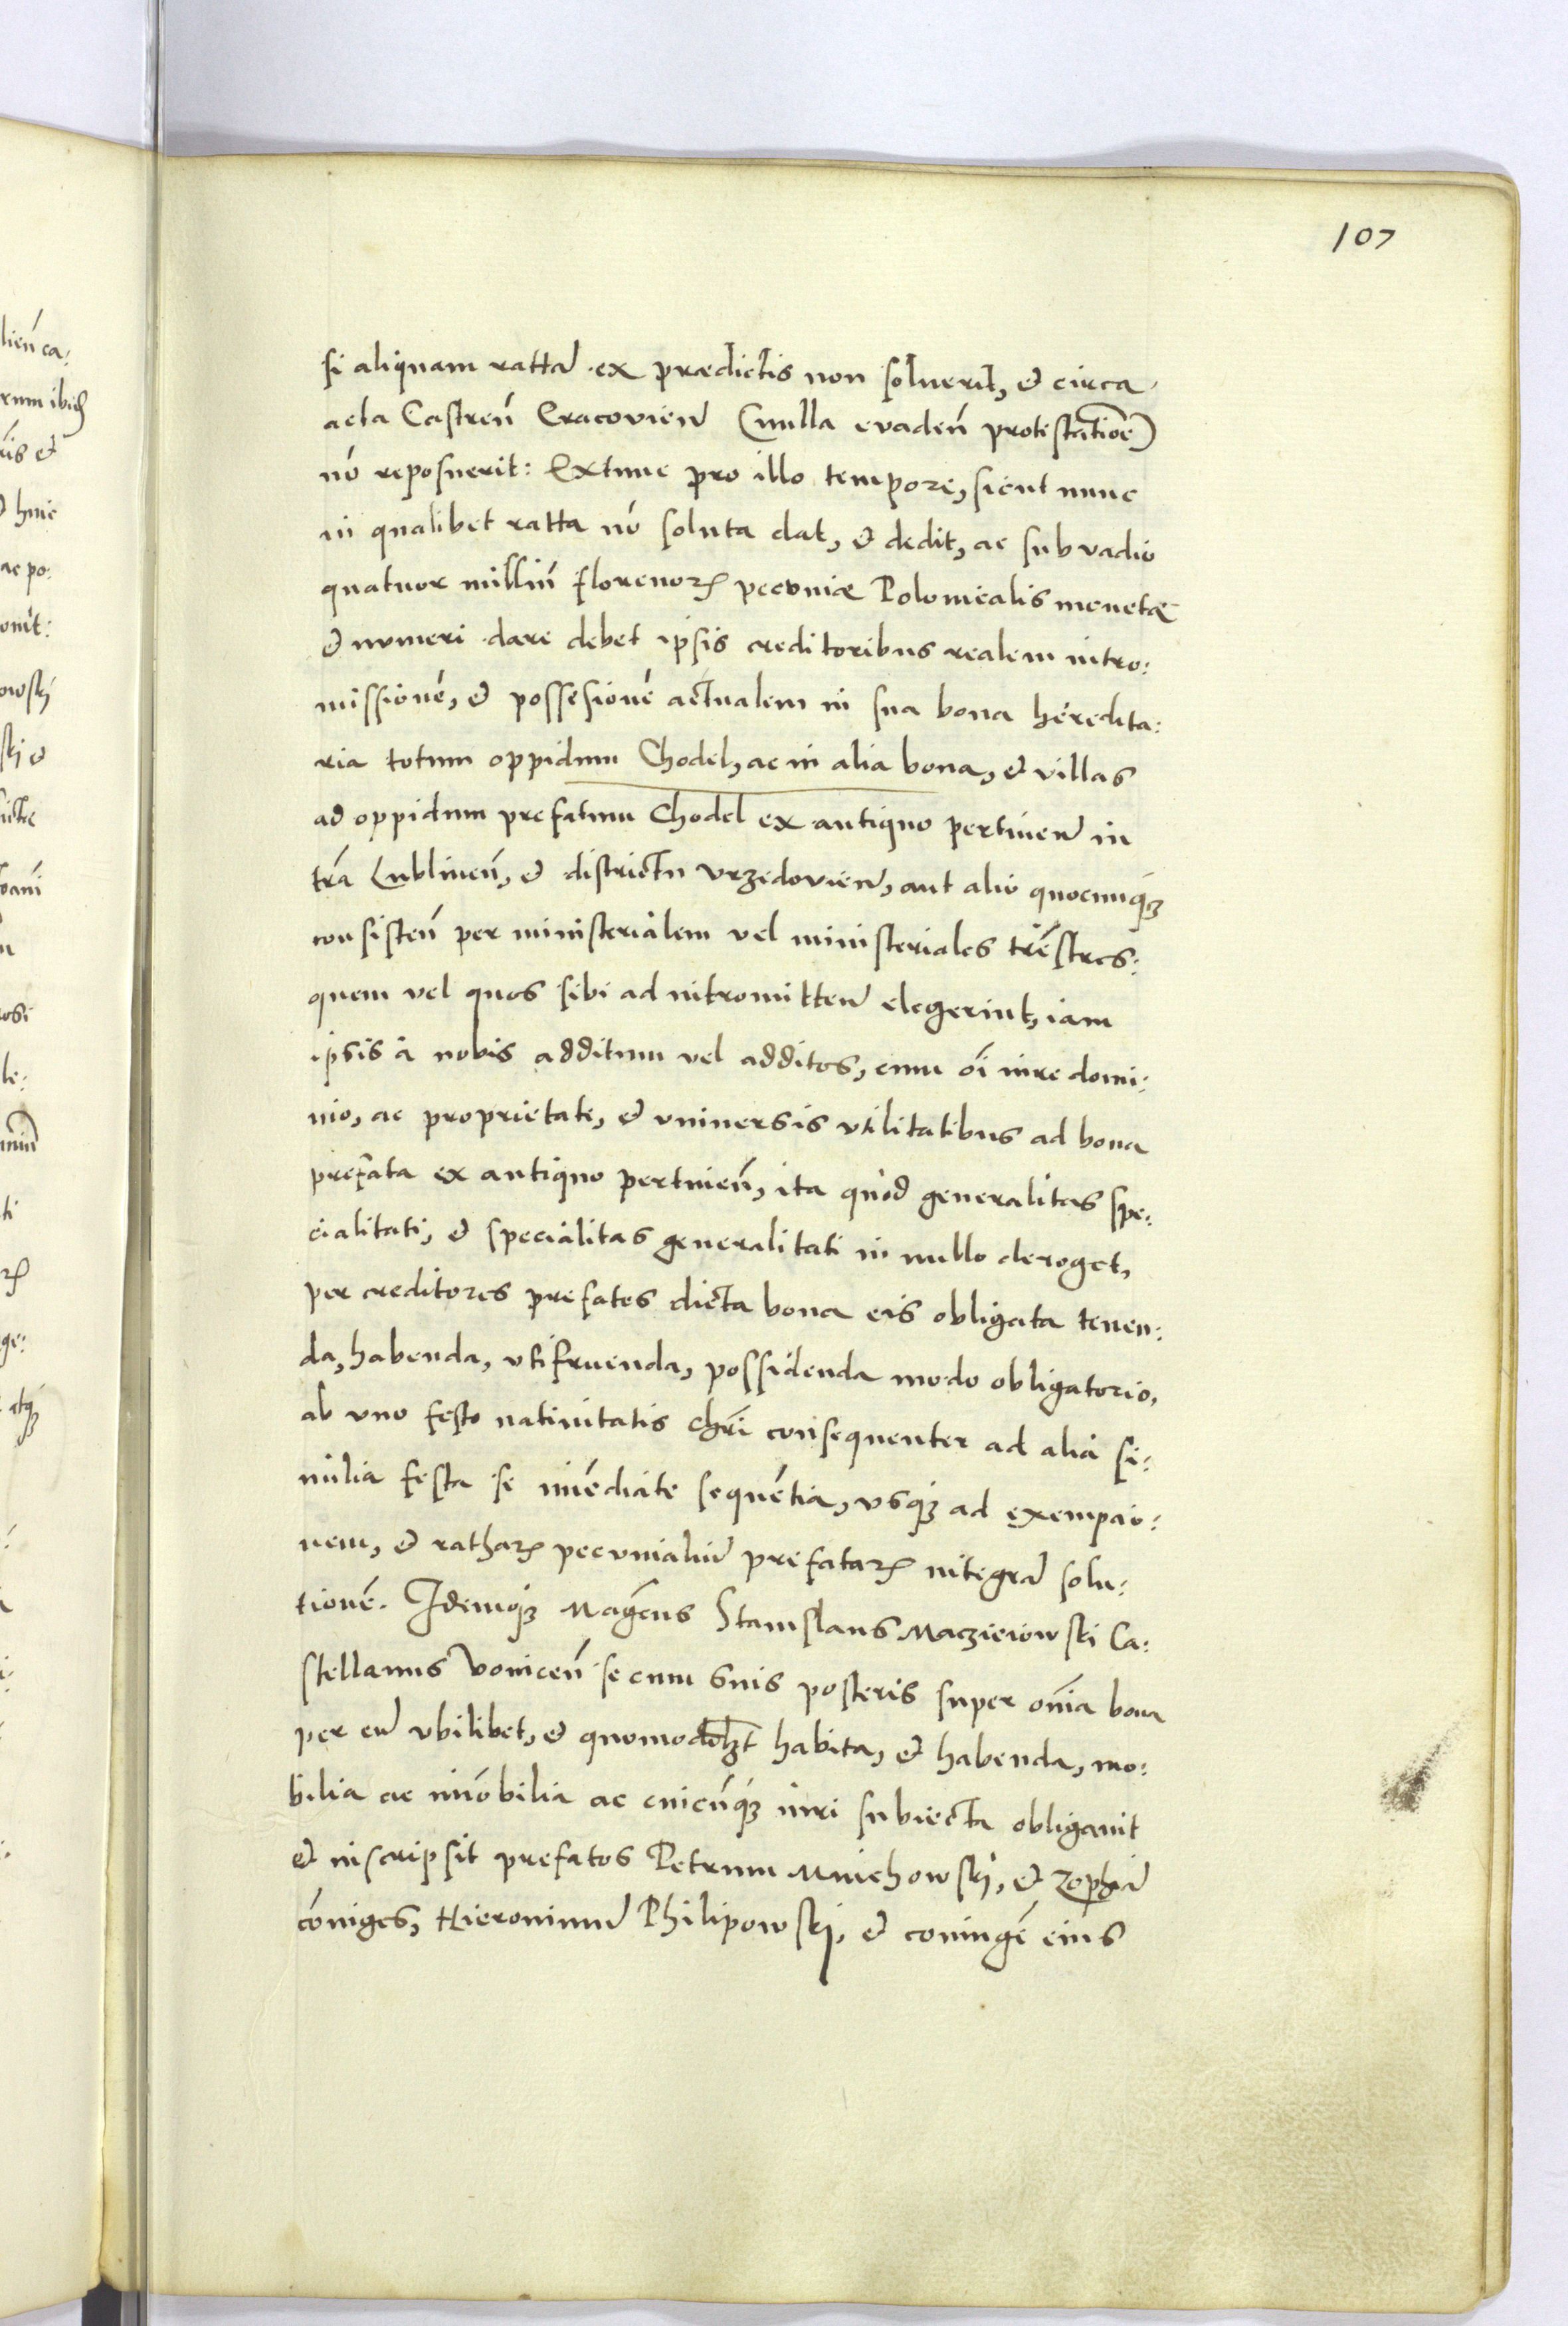 107
si aliquam rattã ex prædictis non soluerit, et circa
acta Castren̄ Cracovien̄ (nulla evaden̄ protestatiõe)
nõ reposuerit: Extunc pro illo tempore, sicut nunc
in qualibet ratta nõ soluta dat, et dedit, ac sub vadio
quatuor milliũ florenoꝝ pecuniæ Polonicalis monetæ
et numeri dare debet ipsis creditoribus realem intro:
missionẽ, et possesionẽ actualem in sua bona heredita:
ria totum oppidum Chodel, ac in alia bona, et villas
ad oppidum prefatum Chodel ex antiquo pertinen̄ in
tr̃a Lublinen̄, et districtu Vrzedovien̄, aut alio quocunqꝫ
consisten̄ per ministerialem vel ministeriales tr̃estres:
quem vel quos sibi ad intromitten̄ elegerint, iam
ipsis à nobis additum vel additos, cum õi iure domi:
nio, ac proprietate, et vniuersis vtilitatibus ad bona
prefata ex antiquo pertinen̄, ita quòd generalitas spe:
cialitati, et specialitas generalitati in nullo deroget,
per creditores prefatos dicta bona eis obligata tenen:
da, habenda, vtifruenda, possidenda modo obligatorio,
ab vno festo natiuitatis chr̃i consequenter ad alia si:
milia festa se im̃ediate sequẽtia, vsqꝫ ad exempcio:
nem, et rathaꝝ pecunialiũ prefataꝝ integrã solu:
tionẽ. Idemqꝫ Mag̃cus Stanislaus Maczieiowski Ca:
stellanus Voinicen̄ se cum suis posteris super om̃ia bona
per eũ vbilibet, et quomodolꝫt habita, et habenda, mo:
bilia ac im̃obilia ac cuicũqꝫ iuri subiecta obligauit
et inscripsit prefatos Petrum Mnichowski, et Zophiã
cõniges, Hieronimũ Philipowski, et coniugẽ eius